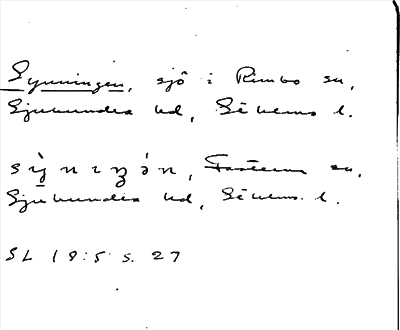 Syningen, sjö i Rimbo sn,
Sjuhundra hd, Sthlms l.
sỳnɩŋən, Fasterna sn,
Sjuhundra hd, Sthlms. l.
SL 19:5 s. 27